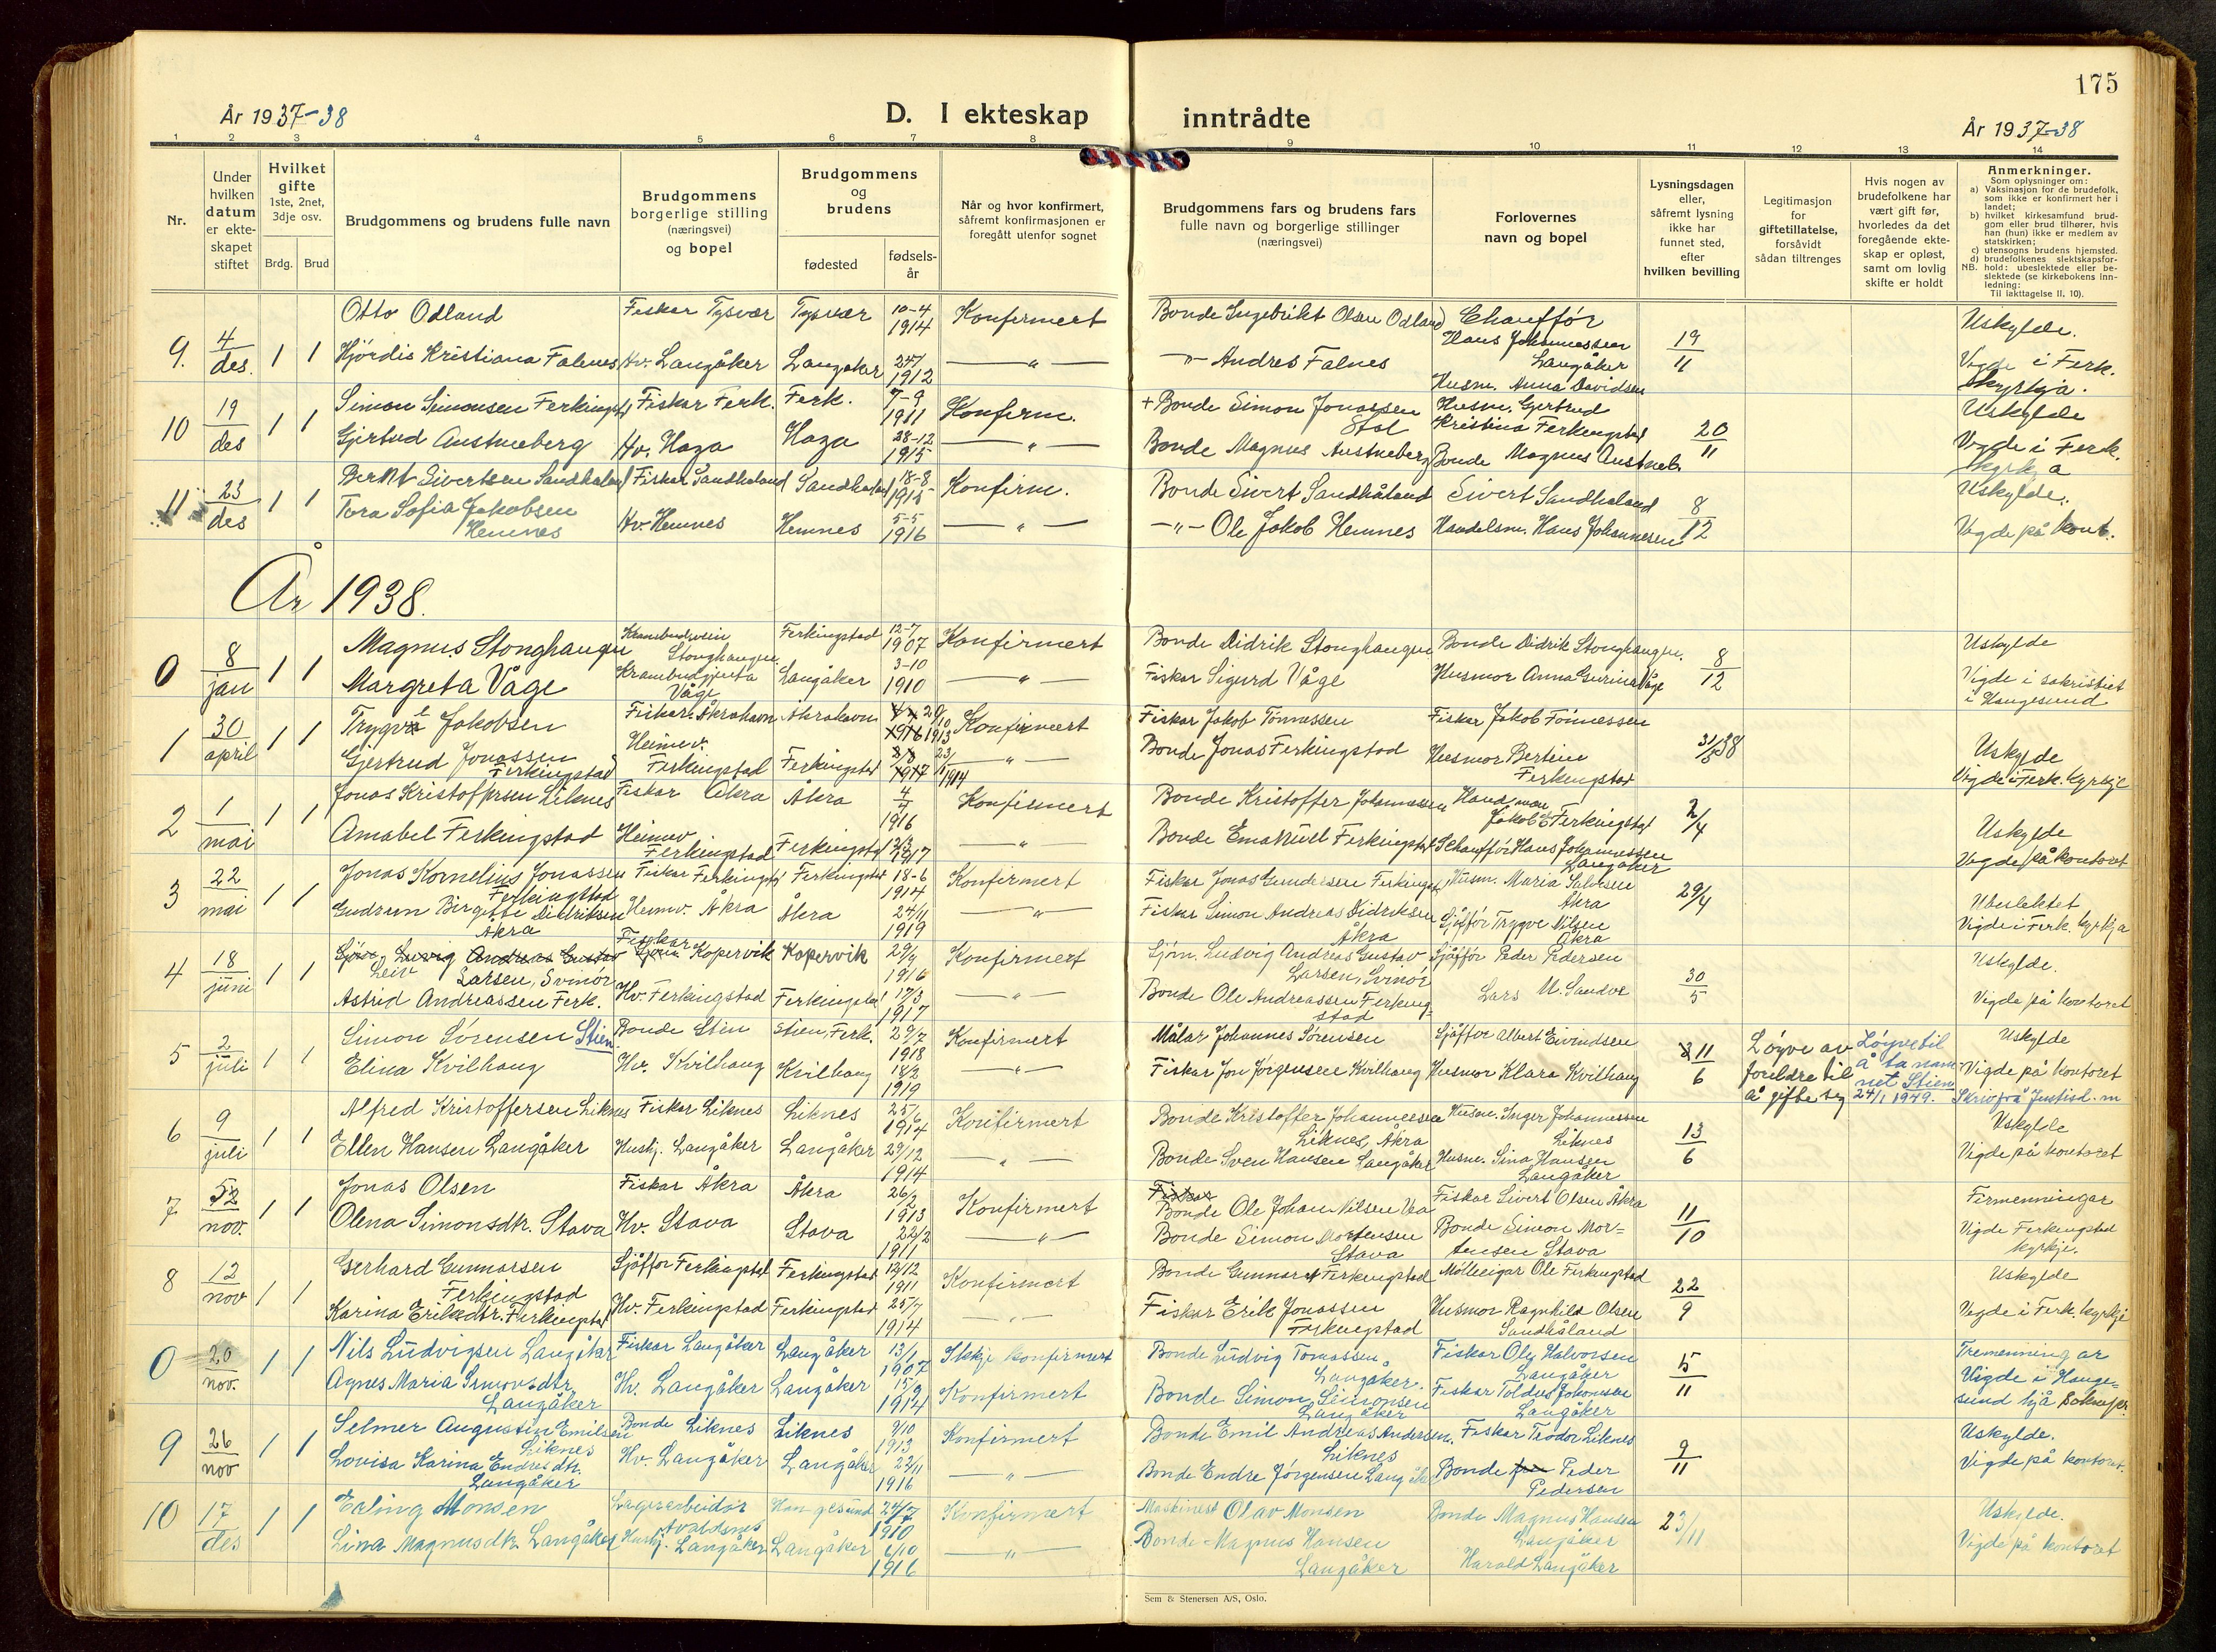 175
År 1937-38
D. I ekteskap inntrådte
År 1937-38
1 2 3 4 5 6 7 8 9 10 11 12 13 14
Nr.
Under hvilken datum er ekteskapet stiftet
Hvilket gifte 1ste, 2net, 3dje osv.
Brdg. Brud
Brudgommens og brudens fulle navn
Brudgommens borgerlige stilling (næringsvei) og bopel
Brudgommens og brudens
fødested
fødsels-år
Når og hvor konfirmert, såfremt konfirmasjonen er foregått utenfor sognet
Brudgommens fars og brudens fars fulle navn og borgerlige stillinger (næringsvei)
Forlovernes navn og bopel
Lysningsdagen eller, såfremt lysning ikke har funnet sted, efter hvilken bevilling
Legitimasjon for giftetillatelse, forsåvidt sådan tiltrenges
Hvis nogen av brudefolkene har vært gift før, hvorledes da det foregående ekteskap er opløst, samt om lovlig skifte er holdt
Anmerkninger.
Som oplysninger om:
a) Vaksinasjon for de brudefolk, som ikke er konfirmert her i landet;
b) hvilket kirkesamfund brudgom eller brud tilhører, hvis han (hun) ikke er medlem av statskirken;
c) utensogns brudens hjemsted.
d) brudefolkenes slektskapsforhold: ubeslektede eller beslektede (se kirkebokens innledning:
NB. Til iakttagelse II, 10).
9. 4/des. 1 1 Otto Odland Fiskar Tysvær Tysvær 10-4 1914 Konfirmert Bonde Ingebrikt Olsen Odland Chauffør Hans Johannessen Langåker 19/11 Uskylde.
Hjördis Kristiana Falnes Hv. Langåker Langaker 24/1 1912 —"— —"— Andres Falnes Husm. Anna Davidsen Vigde i Ferk. Kyrkja.
10 19/des 1 1 Simon Simonsen Ferkingst. Fiskar Ferk. Ferk. 7-9 1911 Konfirm. + Bonde Simon Jonassen Stol Husm. Gjertrud Kristina Ferkingstad 20/11 Uskylde
Gjertud Austneberg Hv. Haga Haga 28-12 1915 —"— Bonde Magnus Austneberg Bonde Magnus Austneb. Vigde i Ferk. Kyrkja
11 23/des 1 1 Bernt Sivertsen Sandhaland Fiskar Sandhaland Sandhaland 18-8 1915 Konfirm. Bonde Sivert Sandhåland Sivert Sandhaland 8/12 Uskylde.
Tora Sofia Jakobsen Hemnes Hv. Hemnes Hemnes 5-5 1916 —"— —"— Ole Jakob Hemnes Handelsm. Hans Johannesen Vigde på kont.
År 1938.
0 8/jan 1 1 Magnus Stonghaugen Stonghaugen Ferkingstad 12-7 1907 Konfirmert Bonde Didrik Stonghaugen Bonde Didrik Stonghaugen. 8/12 Uskylde
Margreta Våge Krambudgjenta Våge Langåker 3-10 1910 —"— Fiskar Sigurd Våge Husmor Anna Gurina Våge Vigde i sakristiet i Haugesund
1 30/april 1 1 Trygve Jakobsen Fiskar Åkrahavn Åkrahavn 20/10 1916 1913 Konfirmert Fiskar Jakob Tönnessen Fiskar Jakob Tönnessen 31/3 38 Uskylde
Gjertrud Jonassen Ferkingstad Heimev. Ferkingstad Ferkingstad 1917 23/1 1914 —"— Bonde Jonas Ferkingstad Husmor Bertine Ferkingstad Vigde i Ferk. kyrkje
2 1/mai 1 1 Jonas Kristoffersen Liknes Fiskar Åkra Åkra 4/7 1916 Konfirmert Bonde Kristoffer Johannessen Jakob Ferkingstad 2/4 Uskylde
Amabel Ferkingstad Heimev Ferkingstad Ferkingstad 12/3 1917 —"— Bonde Emanuel Ferkingstad Schauffør Hans Johannessen Langåker Vigde på kontoret
3 22/mai 1 1 Jonas Kornelius Jonassen Ferkingstad Fiskar Ferkingst. Ferkingstad 18-6 1914 Konfirmert Fiskar Jonas Gundersen Ferkingst. Husm. Maria Salvesen Åkra 29/4 Ubeslektet
Gudrun Birgitte Didriksen Åkra Heimev. Åkra Åkra 24/11 1919 —"— Fiskar Simon Andreas Didriksen Åkra Sjåffør Trygve Nilsen Åkra Vigde i Ferk. kyrkja
4 18/juni 1 1 Leiv Larsen, Svinör Fiskar Kopervik Kopervik 29/9 1916 Konfirmert Sjøm. Ludvig Andreas Gustav Larsen, Svinör Sjåffør Peder Pedersen 30/5 Uskylde.
Astrid Andreassen Ferk. Hv. Ferkingstad Ferkingstad 17/3 1917 —"— Bonde Ole Andreassen Ferkingstad Lars M. Sandve Vigde på kontoret
5 2/juli 1 1 Simon Sörensen Stien Bonde Stien Stien, Ferk. 29/7 1918 Konfirmert Målar Johannes Sörensen Sjåffør Albert Eivindsen 11/6 Løyve av foreldre til å gifte seg Løyve til å ta namnet Stien 24/1 1949. Uskylde
Elina Kvilhaug Hv. Kvilhaug Kvilhaug 18/2 1919 —"— Fiskar Jon Jörgensen Kvilhaug Husmor Klara Kvilhaug Vigde på kontoret Skriv frå Justisd.m
6 9/juli 1 1 Alfred Kristoffersen Liknes Fiskar Liknes Liknes 25/6 1914 Konfirmert Bonde Kristoffer Johannessen Liknes, Åkra Husm. Inger Johannessen Liknes 13/6 Uskylde
Ellen Hansen Langåker Hushj. Langåker Langåker 29/12 1914 —"— Bonde Sven Hansen Langåker Husm. Sina Hansen Langåker Vigde på kontoret
7 nov. 1 1 Jonas Olsen Fiskar Åkra Åkra 26/2 1913 Konfirmert Fiskar Bonde Ole Johan Nilsen Fiskar Sivert Olsen Åkra 11/10 Firmenningar
Olena Simonsdtr. Stava Hv. Stava Stava 22/2 1911 —"— Bonde Simon Mortensen Stava Bonde Simon Mortensen Stava Vigde Ferkingstad kyrkje.
8 12/nov 1 1 Gerhard Gunnarsen Ferkingstad Sjåffør Ferkingstad Ferkingstad 12/12 1911 Konfirmert Bonde Gunnar Ferkingstad Mölleeigar Ole Ferkingstad 22/9 Uskylde
Karina Eriksdtr. Ferkingstad Hv. Ferkingstad Ferkingstad 25/7 1914 —"— Fiskar Erik Jonassen Ferkingstad Husmor Ragnhild Olsen Sandhåland Vigde i Ferk. kyrkje
0 20/nov. 1 1 Nils Ludvigsen Langåker Fiskar Langåker Langåker 13/1 1907 Ikkje konfirmert Bonde Ludvig Tomassen Langåker. Fiskar Ole Halvorsen Langåker 15/11 Tremenningar
Agnes Maria Simonsdtr. Langåker Hv. Langåker Langåker 1914 Konfirmert Bonde Simon Simonsen Langåker Fiskar Johannesen Langåker Vigde i Haugesund hjå
9 26/nov 1 1 Selmer Augustin Emilsen Liknes Bonde Liknes Liknes 9/10 1913 Konfirmert Bonde Emil Andreas Andersen. Liknes Fiskar Teodor Liknes 9/11 Uskylde.
Lovisa Karina Endresdtr. Langåker Hv. Langåker Langåker 22/11 1916 —"— Bonde Endre Jörgensen Langåker Bonde Peder Pedersen Vigde på kontoret.
10 17/des 1 1 Erling Monsen Lagerarbeidar Avaldsnes Haugesund 24/7 1910 Konfirmert Maskinist Olav Monsen Bonde Magnus Hansen Langåker 23/11 Uskylde.
Lina Magnusdtr. Langåker Hushj. Langåker Langåker 6/10 1916 —"— Bonde Magnus Hansen Langåker Harald Langåker Vigde på kontoret
Sem & Stenersen A/S, Oslo.